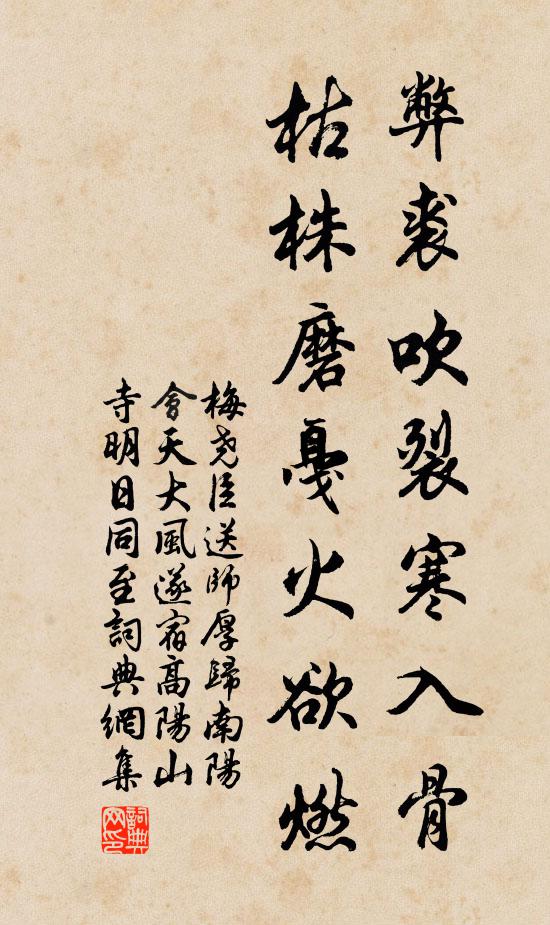 弊裘吹裂寒入骨
枯株磨戛火欲燃
梅尧臣送師厚歸南陽
會天大風遂宿高陽山
寺明日同至詞典網集
詞典网印